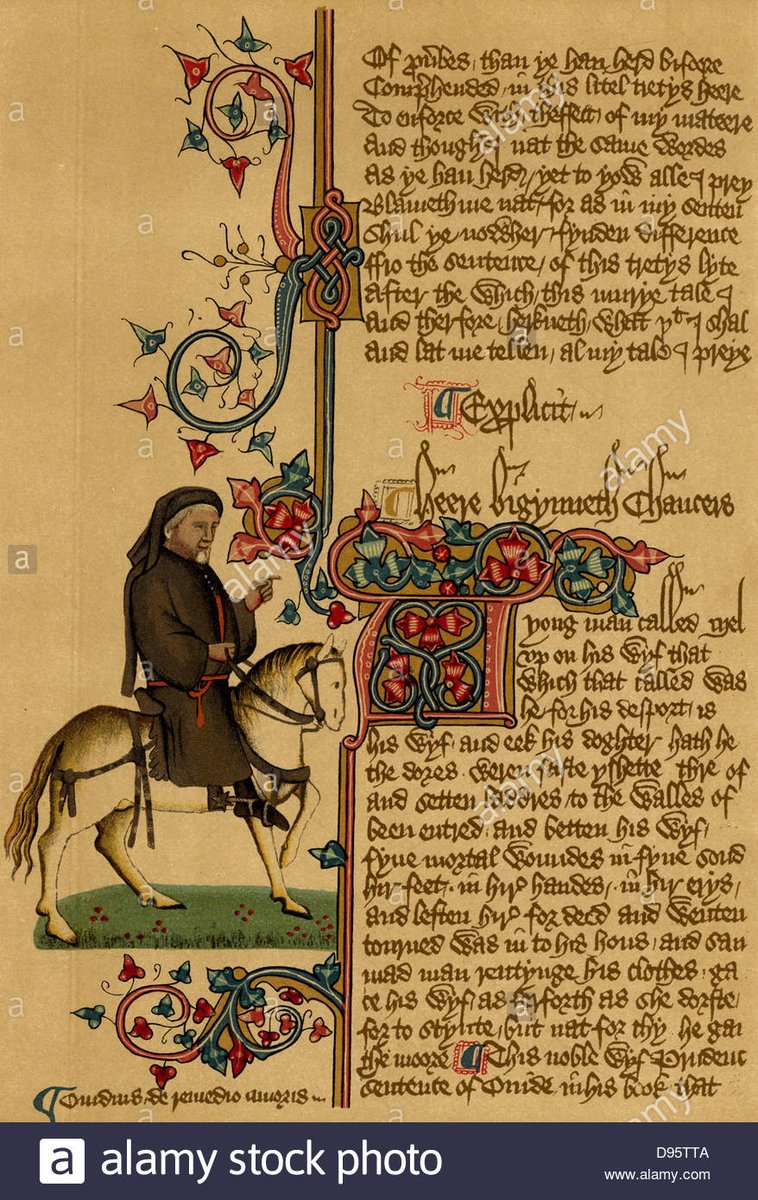 Of than ye han herd bifore
Comprehended, in this litel tretys heere
To enforce with theffect, of my mateere
And though I nat the same wordes
As ye han herd, yet to yow alle I prey
Blameth me nat, for as in my senten
Shul ye nowher, fynden difference
ffro the sentence, of this tretys lyte
After the which, this murye tale I
And therfore, herkneth, what yt I shal
And lat me tellen, al my tale I preye
Explicit
Heere bigynneth Chaucers
A yong man called Mel
vp on his wyf that
which that called was
he for his desport, is
his wyf, and eek his doghter hath he
the dores weren faste yshette thre of
and setten laddres, to the walles of
been entred, and betten his wyf,
fyue mortal woundes in fyue sond
hir feet, in hir handes, in hir erys,
and leften hir for deed and wenten
tourned was in to his hous, and sau
mad man rentynge his clothes, ga
ce his wyf, as ferforth as she dorste,
for to stynte, but nat for thy he gan
the moore This noble wyf Prudenc
sentence of Ouide, in his book that
Ouidius de remedio amoris
a alamy stock photo
D95TTA
www.alamy.com